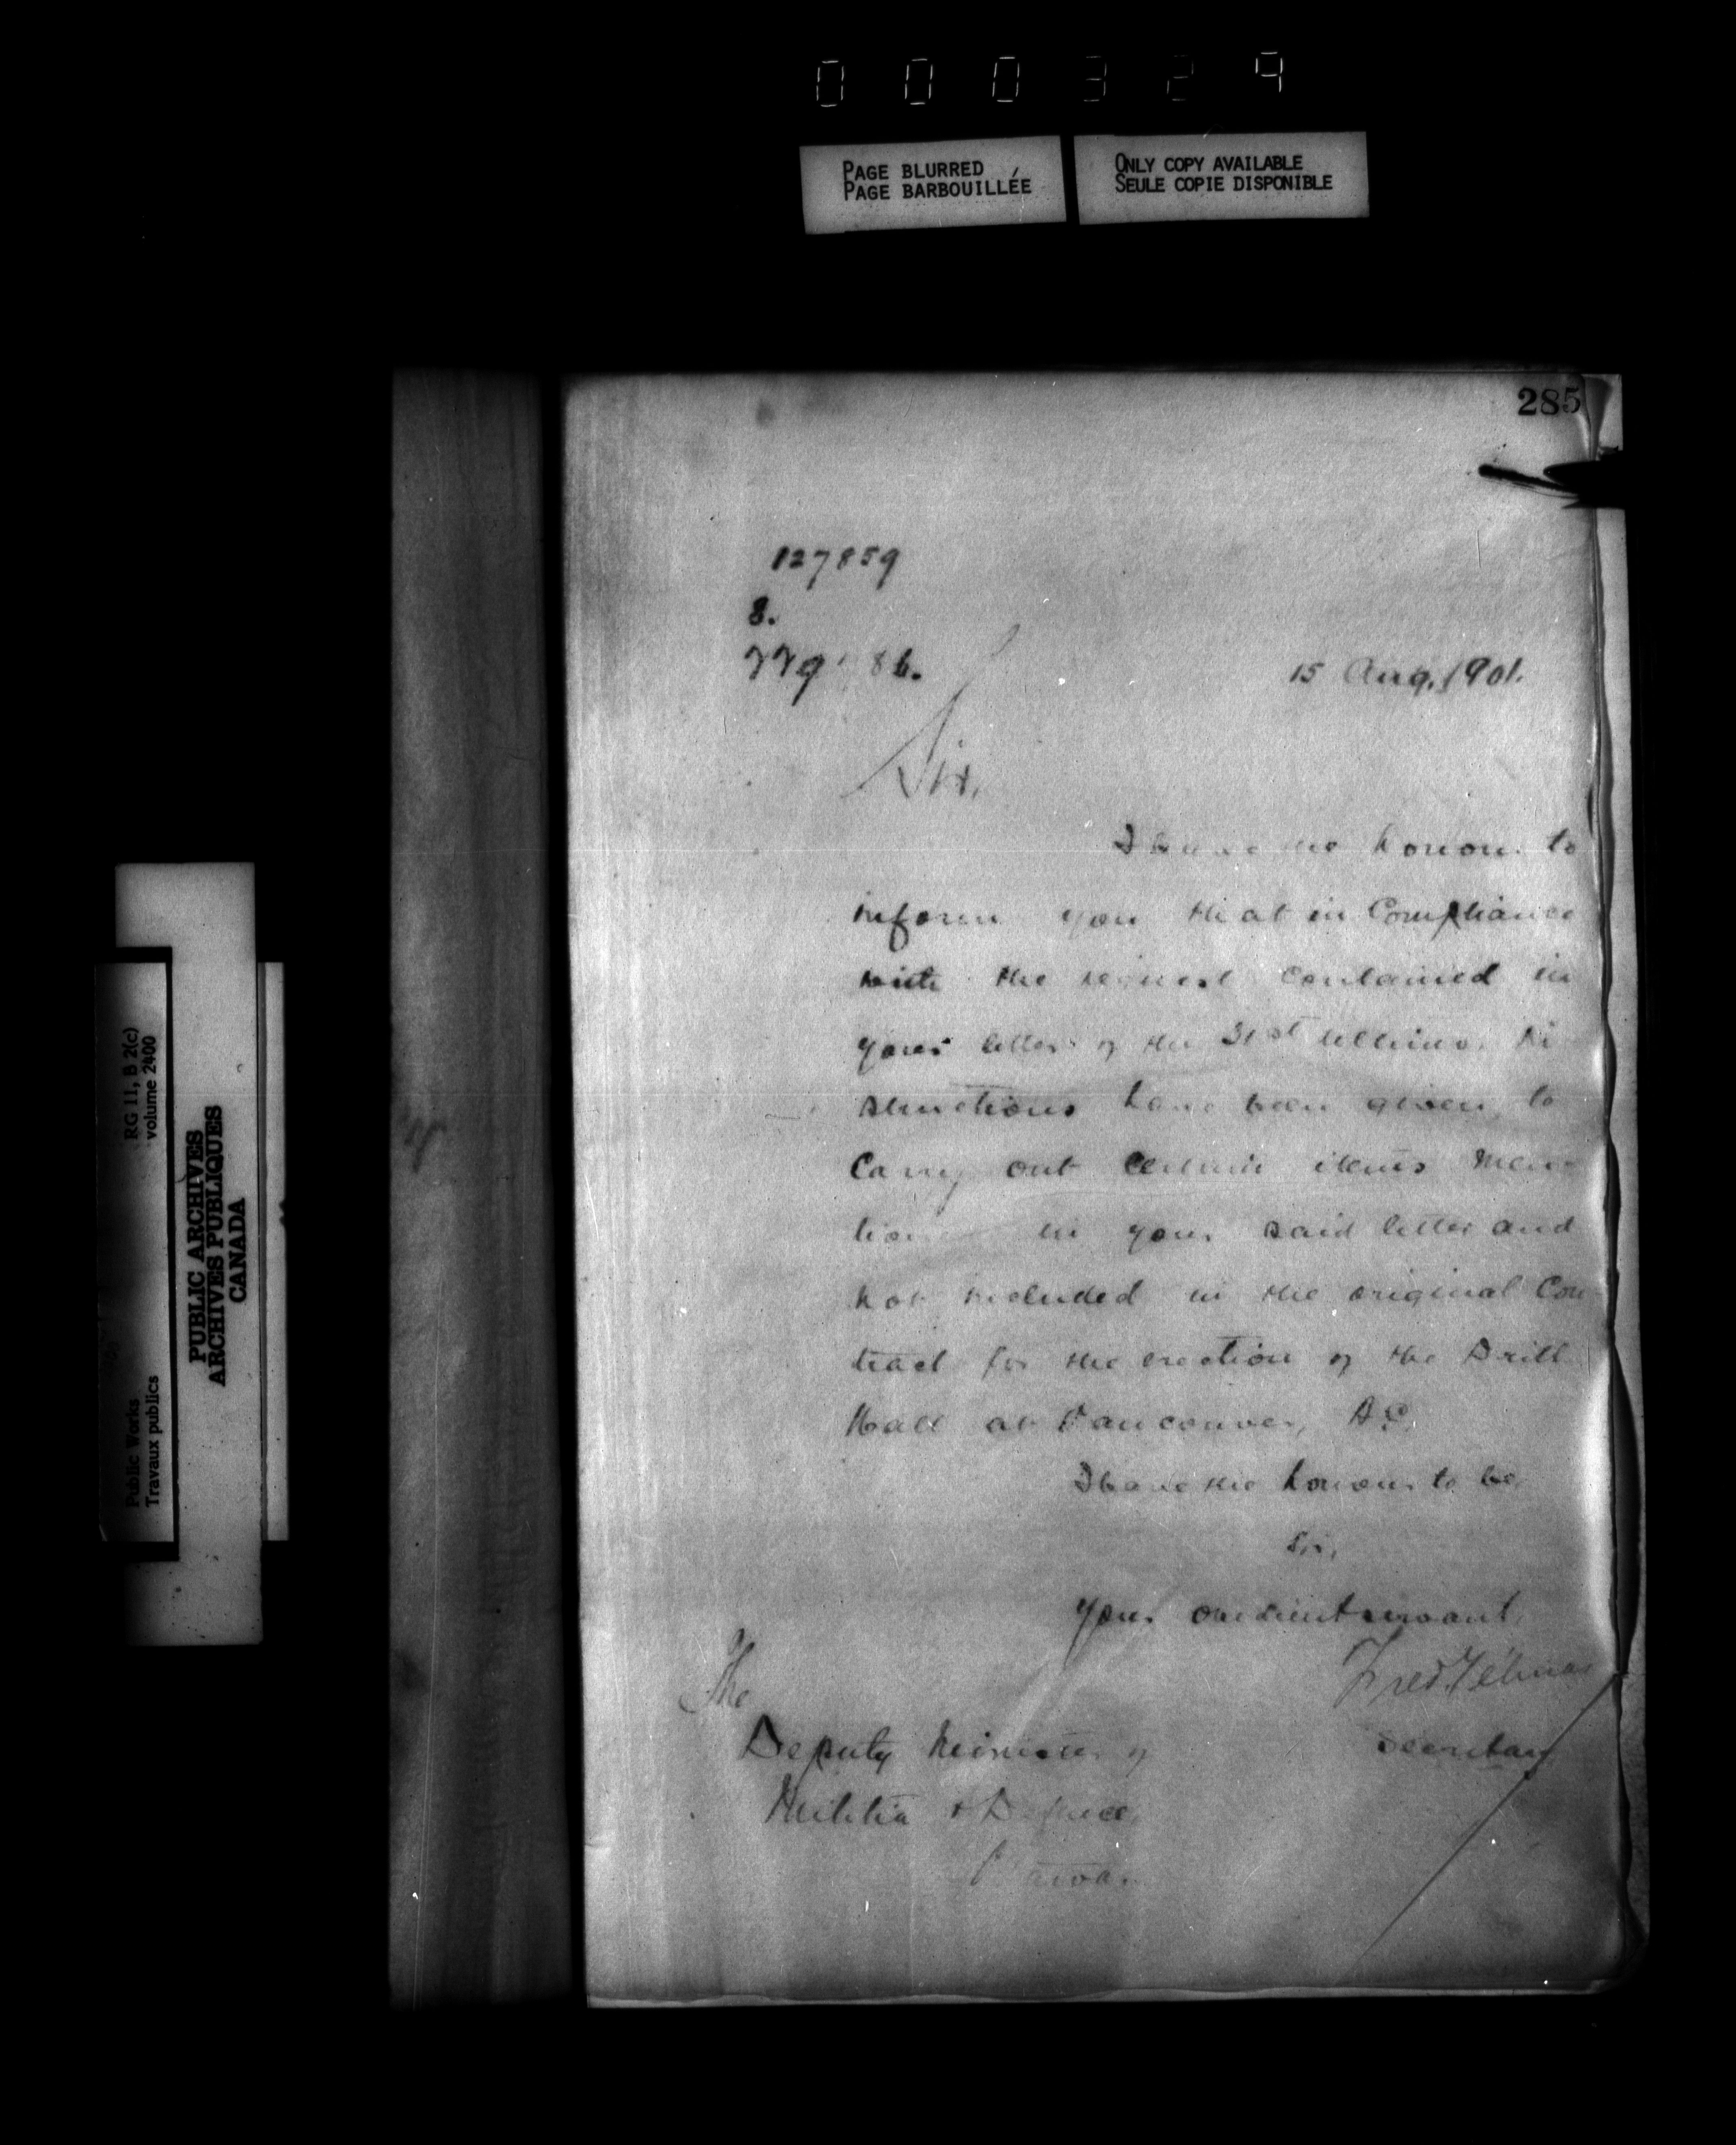 000329
PAGE BLURRED
PAGE BARBOUILLÉE
ONLY COPY AVAILABLE
SEULE COPIE DISPONIBLE
285
127859
8.
779 86.
15 Aug. 1901.
Sir,
I have the honour to
inform you that in Compliance
with the request contained in
your letter of the 31st ultimo. In
structions have been given to
Carry out certain items men-
tion in your said letter and
not included in the original Con
tract for the erection of the Drill
Hall at Vancouver, B.C.
I have the honour to be,
Sir,
Your obedient servant,
Fred. Gélinas
Secretary
The
Deputy Minister of
Militia & Defence,
Ottawa.
RG 11, B 2(c)
volume 2400
PUBLIC ARCHIVES
ARCHIVES PUBLIQUES
CANADA
Public Works
Travaux publics